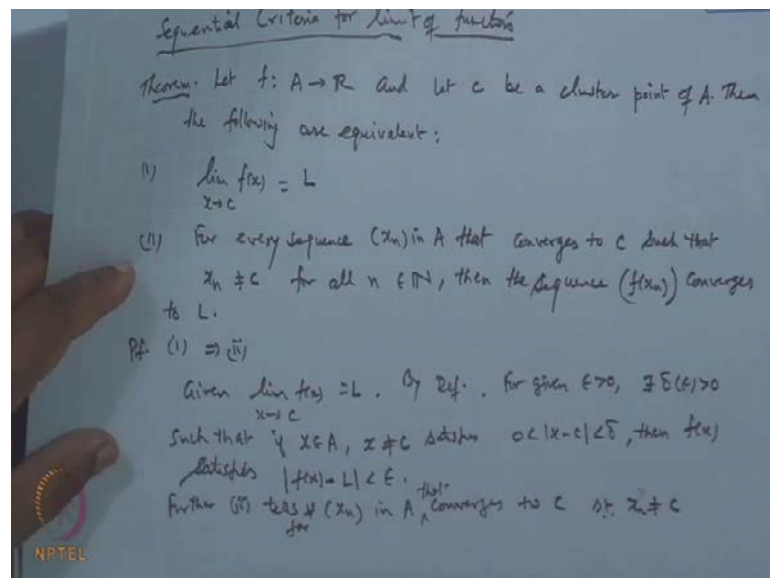 Sequential Criteria for limit of functions
Theorem. Let f: A → R and let c be a cluster point of A. Then
the following are equivalent:
(i) lim f(x) = L
x→c
(ii) For every sequence (xn) in A that converges to c such that
xn ≠ c for all n ∈ ℕ, then the sequence (f(xn)) converges
to L.
Pf. (i) ⇒ (ii)
Given lim f(x) = L. By Def. For given ε>0, ∃ δ(ε)>0
x→c
Such that if x∈A, x≠c satisfies 0<|x-c|<δ, then f(x)
satisfies |f(x)-L|<ε.
Further (ii) tells for (xn) in A, that converges to c st. xn ≠ c
NPTEL